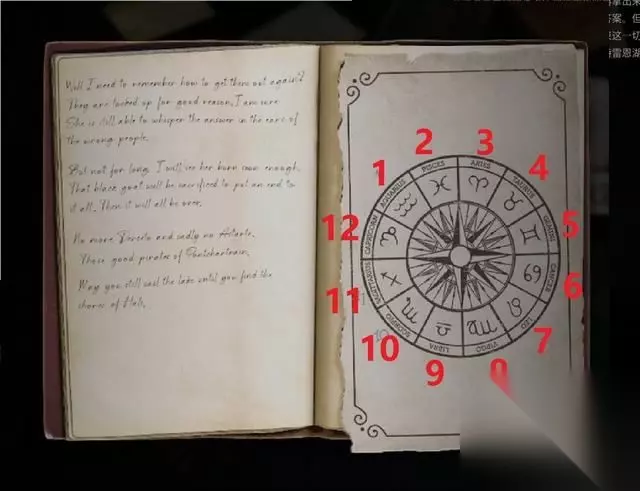 Will I need to remember how to get them out again?
They are locked up for good reason, I am sure
She is still able to whisper the answer in the ears of
the wrong people.
But not for long. I will see her burn soon enough.
That black goat will be sacrificed to put an end to
it all. Then it will all be over.
No more and sadly no
Those good pirates of Pontchartrain.
May you still sail the lake until you find the
shores of
1
2
3
4
5
6
7
9
10
11
12
AQUARIUS
PISCES
ARIES
TAURUS
GEMINI
CANCER
LEO
VIRGO
LIBRA
SCORPIO
SAGITTARIUS
CAPRICORN
案,但
这一切
雷恩湖